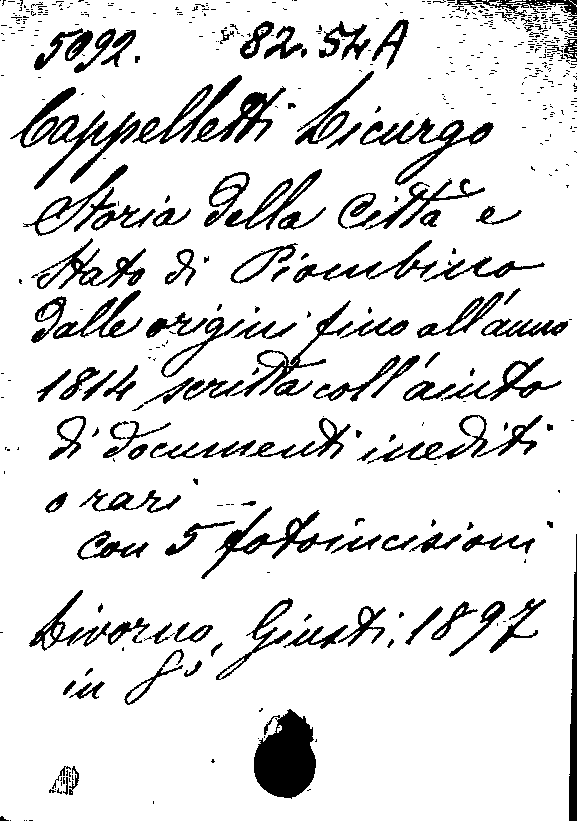 5092. 82.54A
Cappelletti Licurgo
Storia della Città e
Stato di Piombino
dalle origini fino all'anno
1814 scritta coll'aiuto
di documenti inediti
o rari
con 5 fotoincisioni
Livorno, Giusti, 1897
in 8°